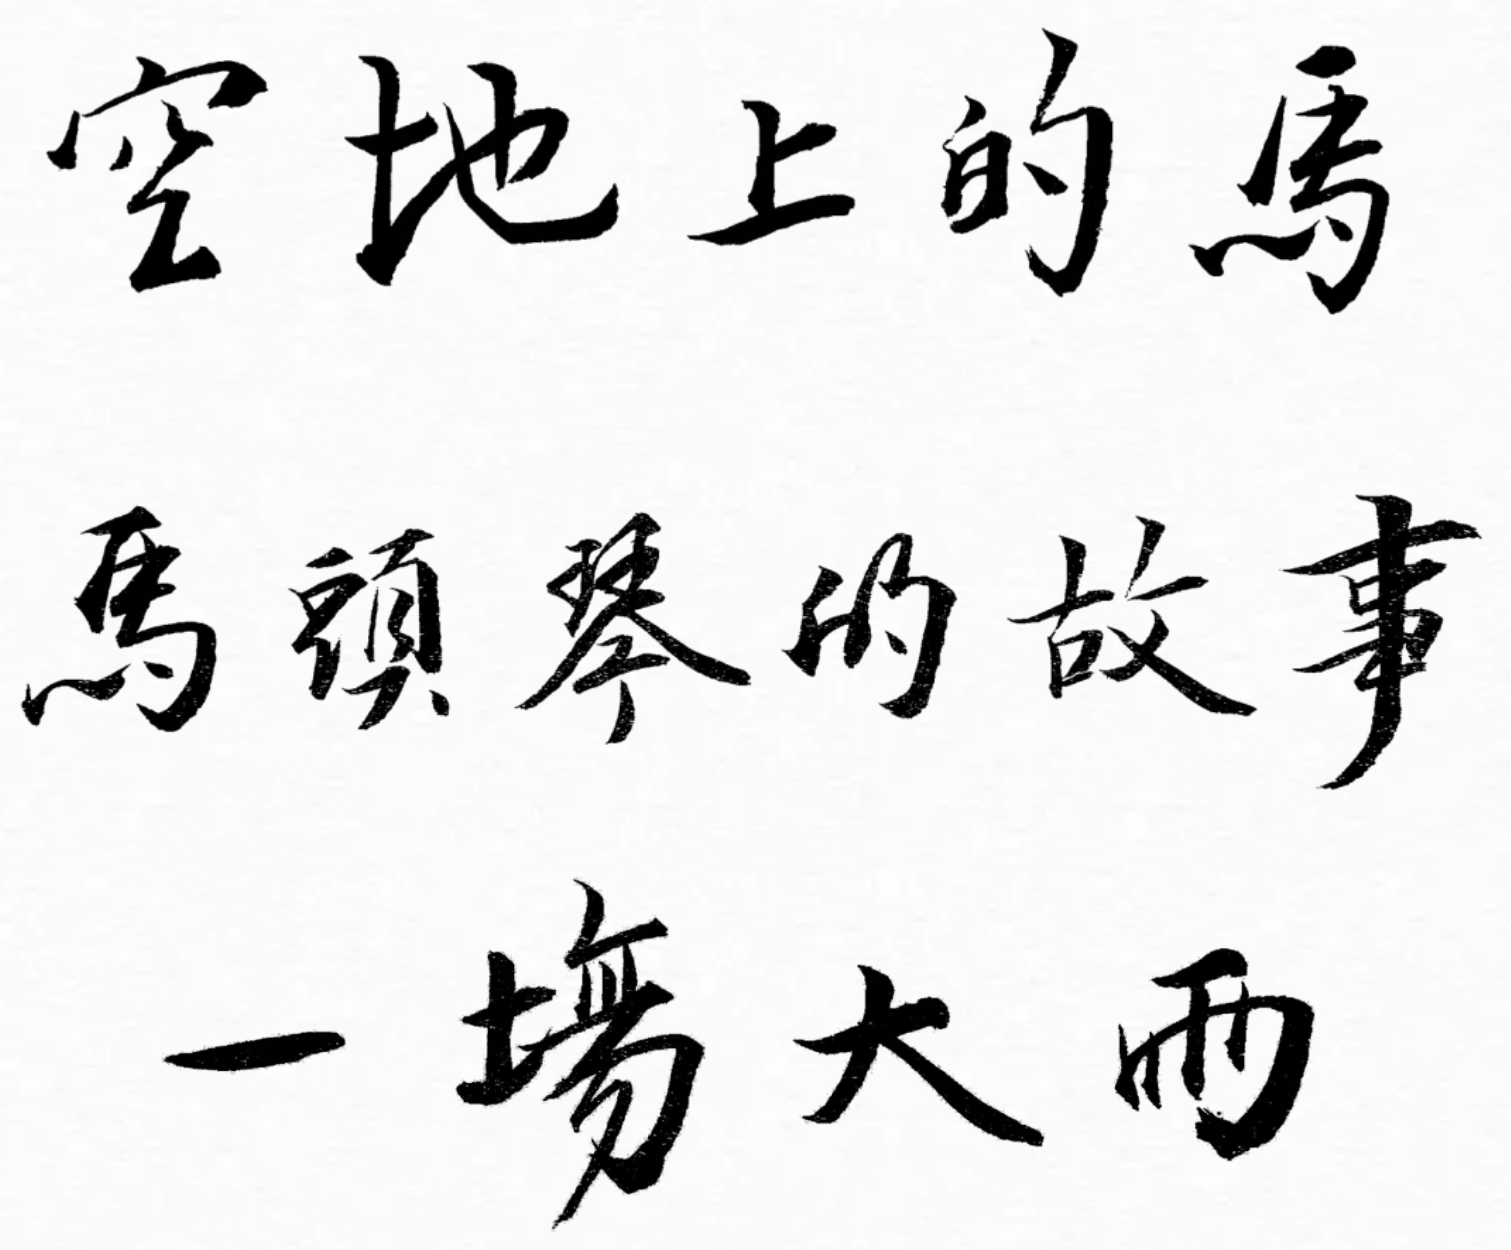 空地上的馬
馬頭琴的故事
一場大雨